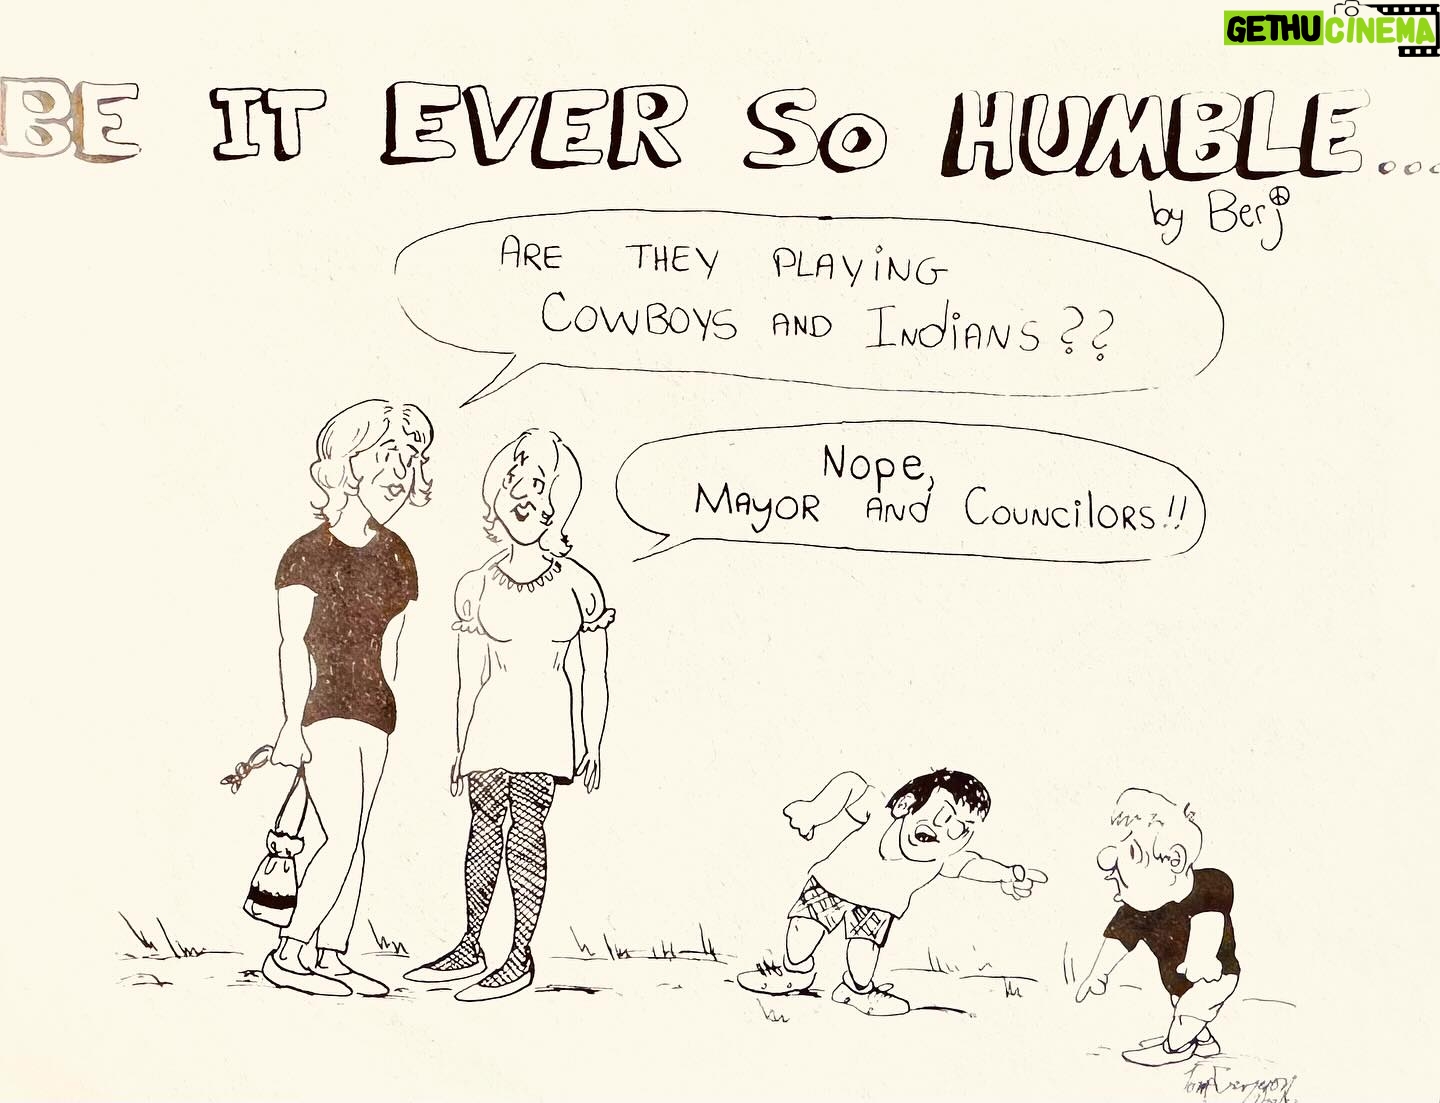 GETHUCINEMA
BE IT EVER SO HUMBLE...
by Berj
ARE THEY PLAYING
COWBOYS AND INdiANS??
Nope,
MAyOR ANd COUNCilORS!!